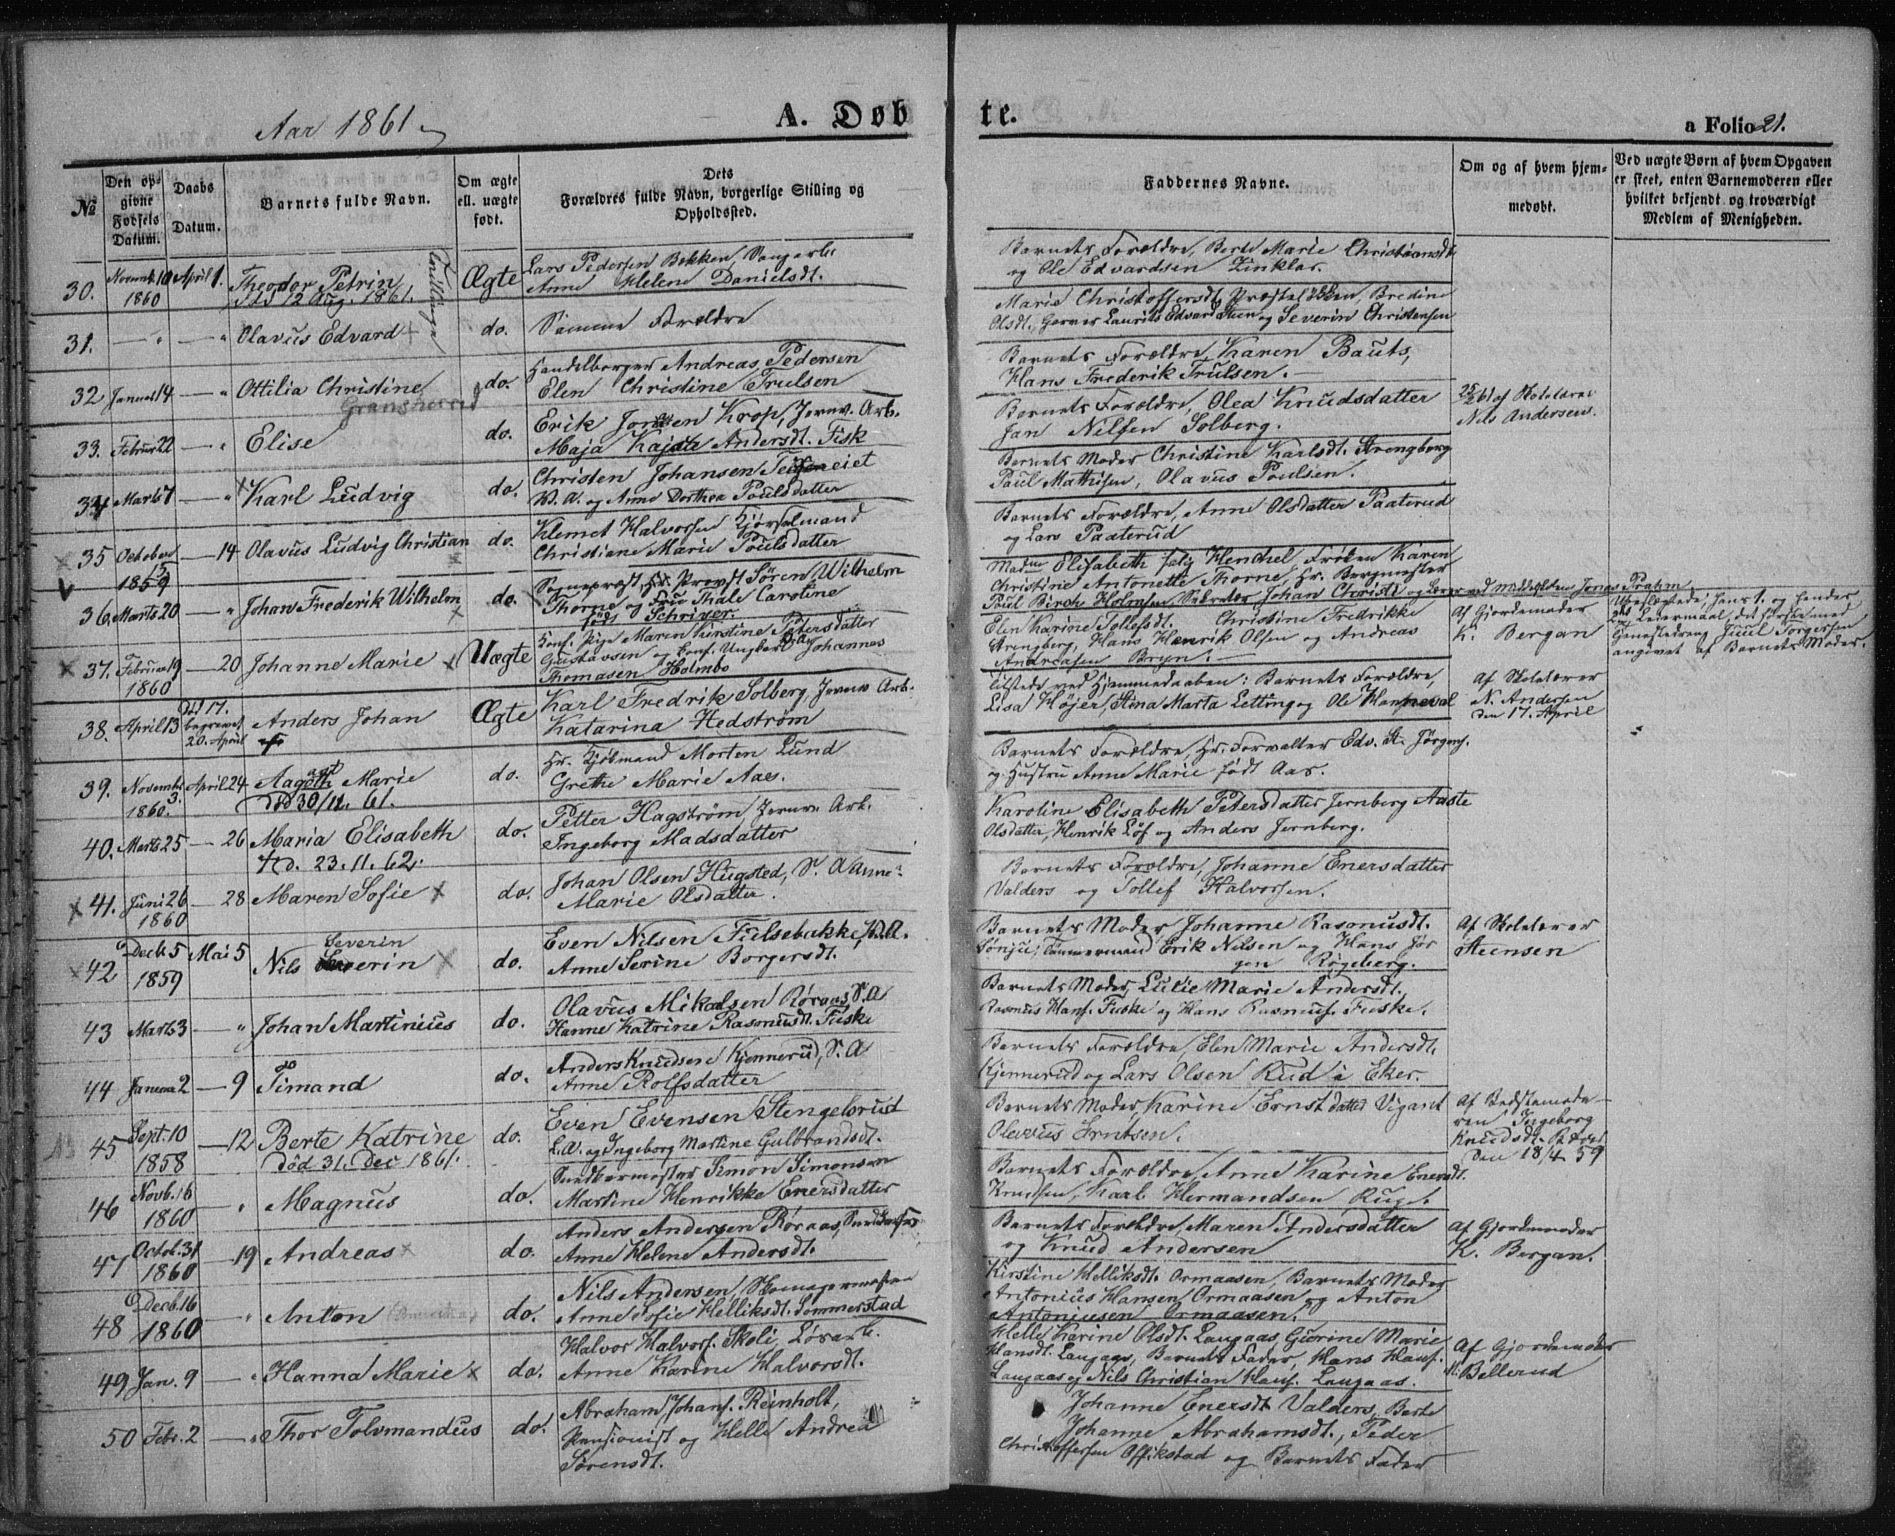 Aar 1861.
A. Døbte.
a Folio 21.
№
Den opgivne Fødsels Datum.
Daabs Datum.
Barnets fulde Navn.
Om ægte ell. uægte født.
Dets Forældres fulde Navn, borgerlige Stilling og Opholdssted.
Faddernes Navne.
Om og af hvem hjemmedøbt.
Ved uægte Børn af hvem Opgaven er skeet, enten Barnemoderen eller hvilket bekjendt og troværdigt Medlem af Menigheden.
30. Novemb. 10 1860 April 1. Theodor Petrin Tvillinger Ægte Lars Pedersen Bekken, Saugarb.
død 12 Aug. 1861. Anne Helene Danielsdt.
Barnets Forældre, Berte Marie Christiansdt.
og Ole Edvardsen Zinklar.
31. — " — " Olavus Edvard + do. Samme Forældre
Marie Christoffersdt. Præstelykken, Bredine
Olsdt., Garver Laurits Edvard Steen og Severin Christensen
32 Januar 14 — " Ottilia Christine do. Handelborger Andreas Pedersen
Elen Christine Trulsen
Barnets Forældre, Karen Bauts,
Hans Frederik Trulsen. —
33. Februar 22 — " Elise Gransherred do. Erik Jonsen Krop, Jernv. Arb.
Maja Kajsa Andersdt. Fisk
Barnets Forældre, Olea Knudsdatter
Jan Nilsen Solberg.
25/2 61 af Skolelærer
Nils Andersen.
34 Marts 7 — " Karl Ludvig do. Christen Johansen Teigeneiet
B. A. og Anne Dorthea Poulsdatter
Barnets Moder Christine Karlsdt. Strengberg
Paul Mathisen, Olavus Poulsen.
35 October 15 1859 — 14 Olavus Ludvig Christian × do. Klemet Halvorsen Kjørselmand
Christiane Marie Poulsdatter
Barnets Forældre, Anne Olsdatter Paaterud
og Lars Paaterud
36. Marts 20 — " Johan Frederik Wilhelm × do. Sognepræst, Hr. Provst Søren Wilhelm
Thorne og Frue Thale Caroline
født Schriver.
Madme Elisabeth Henchel, Frøken Karen
Christine Antonette Thorne, Hr. Bergmester
Poul Birch Holmsen, Sekretær Johan Christi og Lærer ved Middelsten Jonas Prahm
37. Februar 19 1860 — 20 Johanne Marie × Uægte Konf. Pige Maren Kirstine Petersdatter
Gustavsen og Konf. Ungkarl Johannes
Thomasen Holmbo
Elen Karine Tollefsdt. Christine Fredrikke
Strengberg, Hans Henrik Olsen og Andreas
Andreasen Bryn. —
Af Gjordemoder
K. Bergan
Ubeslægtede, hans 1. og hendes
2det Leiermaal,
Juul Torgersen
angivet af Barnets Moder.
38. April 13 død 17. begravet 20. April Anders Johan Ægte Karl Fredrik Solberg, Jernv. Arb.
Katarina Hedström
Tilstede ved Hjemmedaaben: Barnets Forældre,
Lisa Höjer, Stina Marta Letting og Ole Hanneval
Af Skolelærer
N. Andersen
den 17. April
39. Novemb. 3. 1860. April 24 Aagot Marie do. Hr. Kjøbmand Morten Lund
død 30/11. 61. Grethe Marie Aaes.
Barnets Forældre, Hr. Forvalter Edv. A. Jørgens.
og Hustru Anne Marie født Aas.
40. Marts 25 — 26 Maria Elisabeth do. Petter Hagström, Jernv. Arb.
+ d. 23. 11. 62. Ingeborg Madsdatter
Karoline Elisabeth Petersdatter Jernberg Aaste
Olsdatter, Henrik Löf og Anders Jernberg.
× 41. Juni 26 1860 — 28 Maren Sofie × do. Johan Olsen Hugsted, S. A Anne
Marie Olsdatter.
Barnets Forældre, Johanne Enersdatter
Valders og Tollef Halvorsen.
× 42 Decb. 5 1859 Mai 5 Nils Severin × do. Even Nilsen Fulsebakke, B.A.
Anne Serine Borgersdt.
Barnets Moder Johanne Rasmusdt.
Sønju, Tømmermand Erik Nilsen og Hans Jør
gen Røgeberg.
Af Skolelærer
Steensen
43 Marts 3 — " Johan Martinius do. Olavus Mikalsen Røraas, S. A
Hanne Katrine Rasmusdt. Fuske
Barnets Moder Lulie Marie Andersdt.
Rasmus Hans. Fuske og Hans Rasmus. Fuske.
44 Januar 2 — 9 Timand do. Anders Knudsen Kjennerud, S. A
Anne Rolfsdatter
Barnets Forældre, Elen Marie Andersdt.
Kjennerud og Lars Olsen Rud i Eker.
45 Sept. 10 1858 — 12 Berte Katrine do. Even Evensen Stengelsrud
død 31. Dec 1861. L.A. og Ingeborg Martine Gulbrandsdt.
Barnets Moder, Karine Ernstdatter Vigant
Olavus Erntsen.
Af Bedstemode-
ren Ingeborg
Knudsdt.
den 18/4 59
46 Novb. 16 1860 — " Magnus do. Simon Simonsen
Martine Henrikke Enersdatter
Barnets Forældre, Anne Karine Enersdt.
Knudsen, Karl Hermandsen Ruge.
47 Octob. 31 1860 — 19 Andreas × do. Anders Andersen Røraas,
Anne Helene Andersdt.
Barnets Forældre, Maren Andersdatter
og Knud Andersen
Af Gjordemoder
K. Bergan.
48 Decb. 16 1860 — " Anton do. Nils Andersen, Skomagermester
Anne Sofie Helliksdt. Sommerstad
Kirstine Helliksdt. Ormaasen, Barnets Moder
Antonius Hansen Ormaasen og Anton
Antoniusen Ormaasen.
49 Jan. 9 — " Hanna Marie × do. Halvor Halvors. Skoli, Løsarb.
Anne Karine Halvorsdt.
Helle Karine Olsdt. Langaas, Gurine Marie
Hansdt. Langaas, Barnets Fader, Hans Hans.
Langaas og Nils Christian Hans. Langaas.
Af Gjordemoder
M. Bellerud
50 Febr. 2 — " Thor Tolvmandus do. Abraham Johans. Reinholt,
Pensionist og Helle Andrea
Sørensdt.
Johanne Enersdt Valders, Berte
Johanne Abrahamsdt., Peder
Christoffersen Offikstad og Barnets Fader